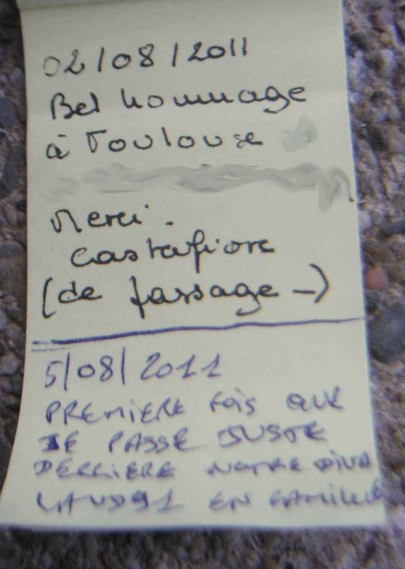 02/08/2011
Bel hommage
à Toulouse
Merci.
Castafiore
(de passage -)
5/08/2011
PREMIERE FOIS QUE
JE PASSE JUSTE
DERRIERE NOTRE DIVA
LAUDG1 EN FAMILLE